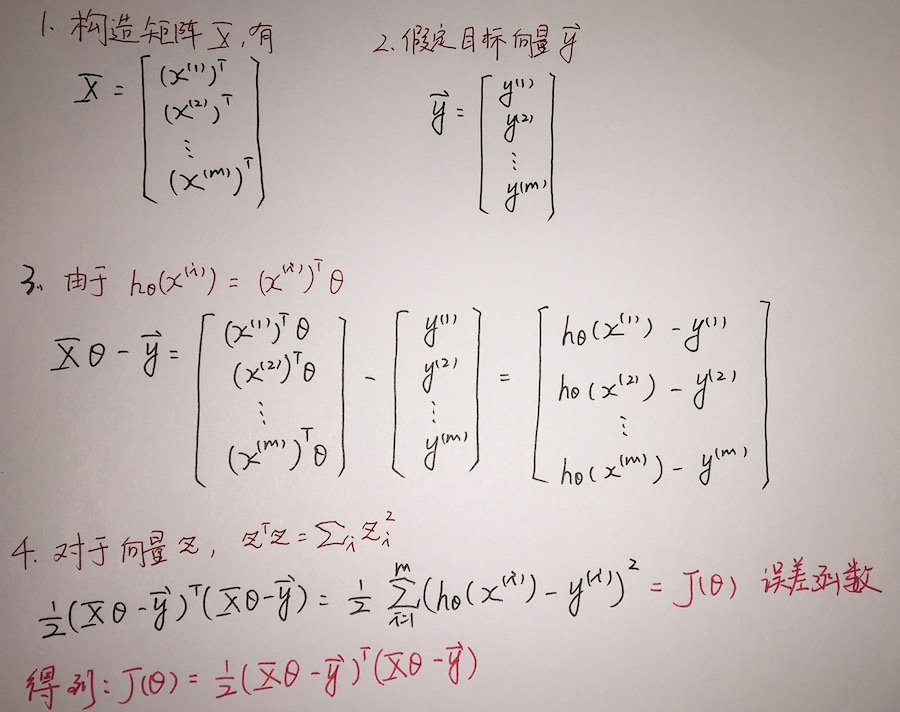 1. 构造矩阵 X, 有
X = [ (x⁽¹⁾)ᵀ (x⁽²⁾)ᵀ ⋮ (x⁽ᵐ⁾)ᵀ ]
2. 假定目标向量 y⃗
y⃗ = [ y⁽¹⁾ y⁽²⁾ ⋮ y⁽ᵐ⁾ ]
3. 由于 hθ(x⁽ⁱ⁾) = (x⁽ⁱ⁾)ᵀ θ
Xθ - y⃗ = [ (x⁽¹⁾)ᵀθ (x⁽²⁾)ᵀθ ⋮ (x⁽ᵐ⁾)ᵀθ ] - [ y⁽¹⁾ y⁽²⁾ ⋮ y⁽ᵐ⁾ ] = [ hθ(x⁽¹⁾) - y⁽¹⁾ hθ(x⁽²⁾) - y⁽²⁾ ⋮ hθ(x⁽ᵐ⁾) - y⁽ᵐ⁾ ]
4. 对于向量 z, zᵀz = ∑ᵢ zᵢ²
½(Xθ - y⃗)ᵀ(Xθ - y⃗) = ½ ∑ᵢ₌₁ᵐ (hθ(x⁽ⁱ⁾) - y⁽ⁱ⁾)² = J(θ) 误差函数
得到: J(θ) = ½(Xθ - y⃗)ᵀ(Xθ - y⃗)